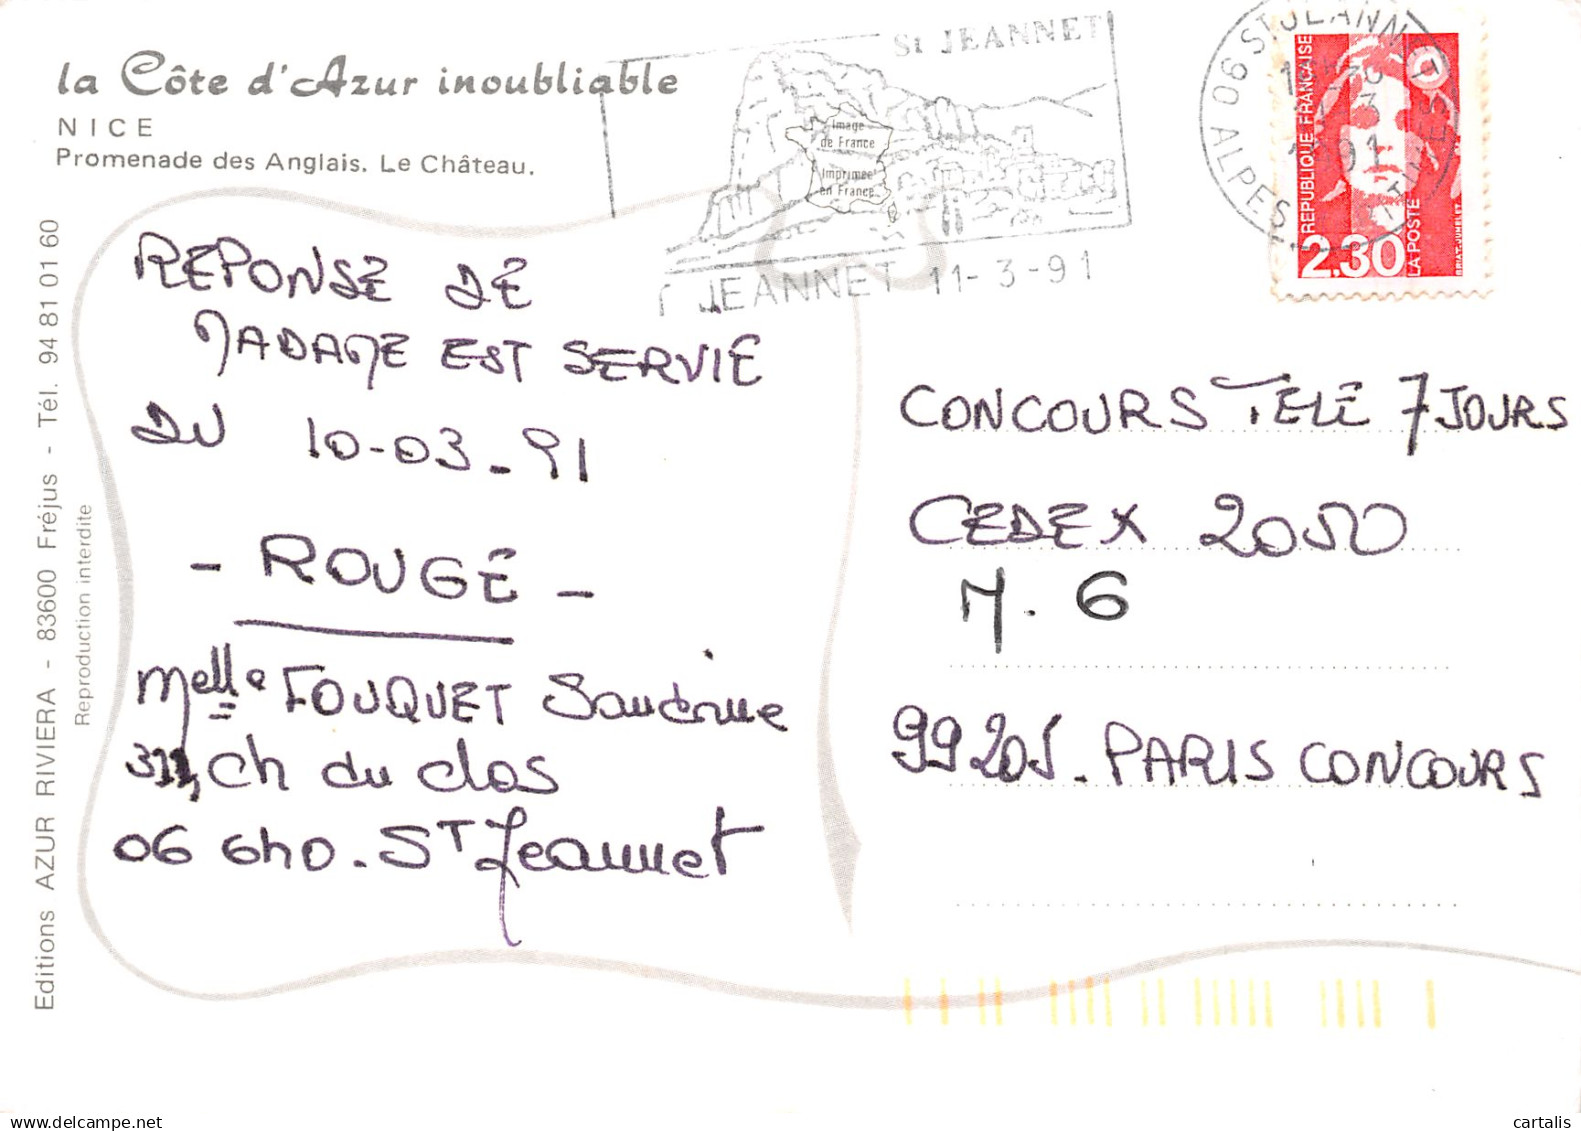 la Côte d'Azur inoubliable
NICE
Promenade des Anglais. Le Château.
St JEANNET
Image
de France
Imprimée
en France
JEANNET 11-3-91
06 ST JEANNET
ALPES
91
REPUBLIQUE FRANÇAISE
LA POSTE
2,30
REPONSE DE
MADAME EST SERVIE
DU 10-03-91
- ROUGE -
Melle FOUQUET Sandrine
Ch du clos
06 640. ST Jeannet
CONCOURS TELE 7 JOURS
CEDEX 2050
M. 6
99205. PARIS CONCOURS
Editions AZUR RIVIERA - 83600 Fréjus - Tél. 94 81 01 60
Reproduction interdite
cartalis